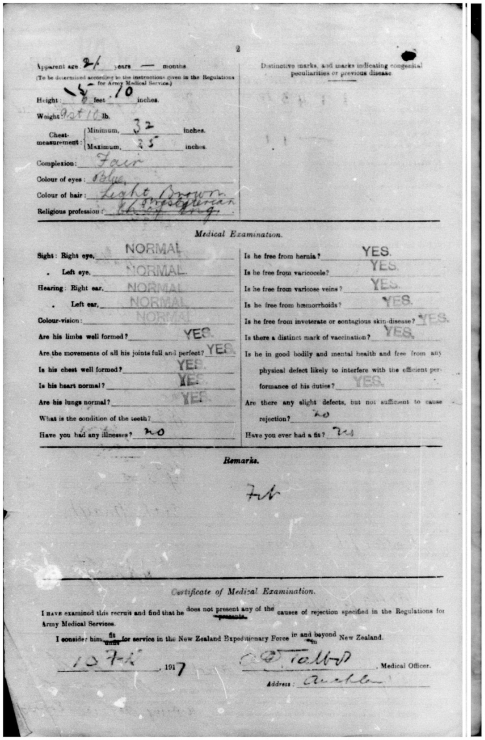 2
Apparent age 21 years — months
(To be determined according to the instructions given in the Regulations
for Army Medical Service.)
Height: 5 feet 10 inches.
Weight 9 st 10 lb.
Chest-measurement: Minimum, 32 inches.
Maximum, 35 inches.
Complexion: Fair
Colour of eyes: Blue
Colour of hair: Light Brown
Presbyterian
Religious profession: Eng
Distinctive marks, and marks indicating congenital
peculiarities or previous disease
Medical Examination.
Sight: Right eye, NORMAL
" Left eye, NORMAL
Hearing: Right ear, NORMAL
" Left ear, NORMAL
Colour-vision: NORMAL
Are his limbs well formed? YES.
Are the movements of all his joints full and perfect? YES.
Is his chest well formed? YES.
Is his heart normal? YES.
Are his lungs normal? YES.
What is the condition of the teeth?
Have you had any illnesses? no
Is he free from hernia? YES.
Is he free from varicocele? YES.
Is he free from varicose veins? YES.
Is he free from hæmorrhoids? YES.
Is he free from inveterate or contagious skin-disease? YES.
Is there a distinct mark of vaccination? YES.
Is he in good bodily and mental health and free from any
physical defect likely to interfere with the efficient per-
formance of his duties? YES.
Are there any slight defects, but not sufficient to cause
rejection? no
Have you ever had a fit?
Remarks.
Fit
Certificate of Medical Examination.
I HAVE examined this recruit and find that he does not present any of the causes of rejection specified in the Regulations for
Army Medical Services.
I consider him fit for service in the New Zealand Expeditionary Force in and beyond New Zealand.
10 Feb, 1917 Talbot, Medical Officer.
Address: